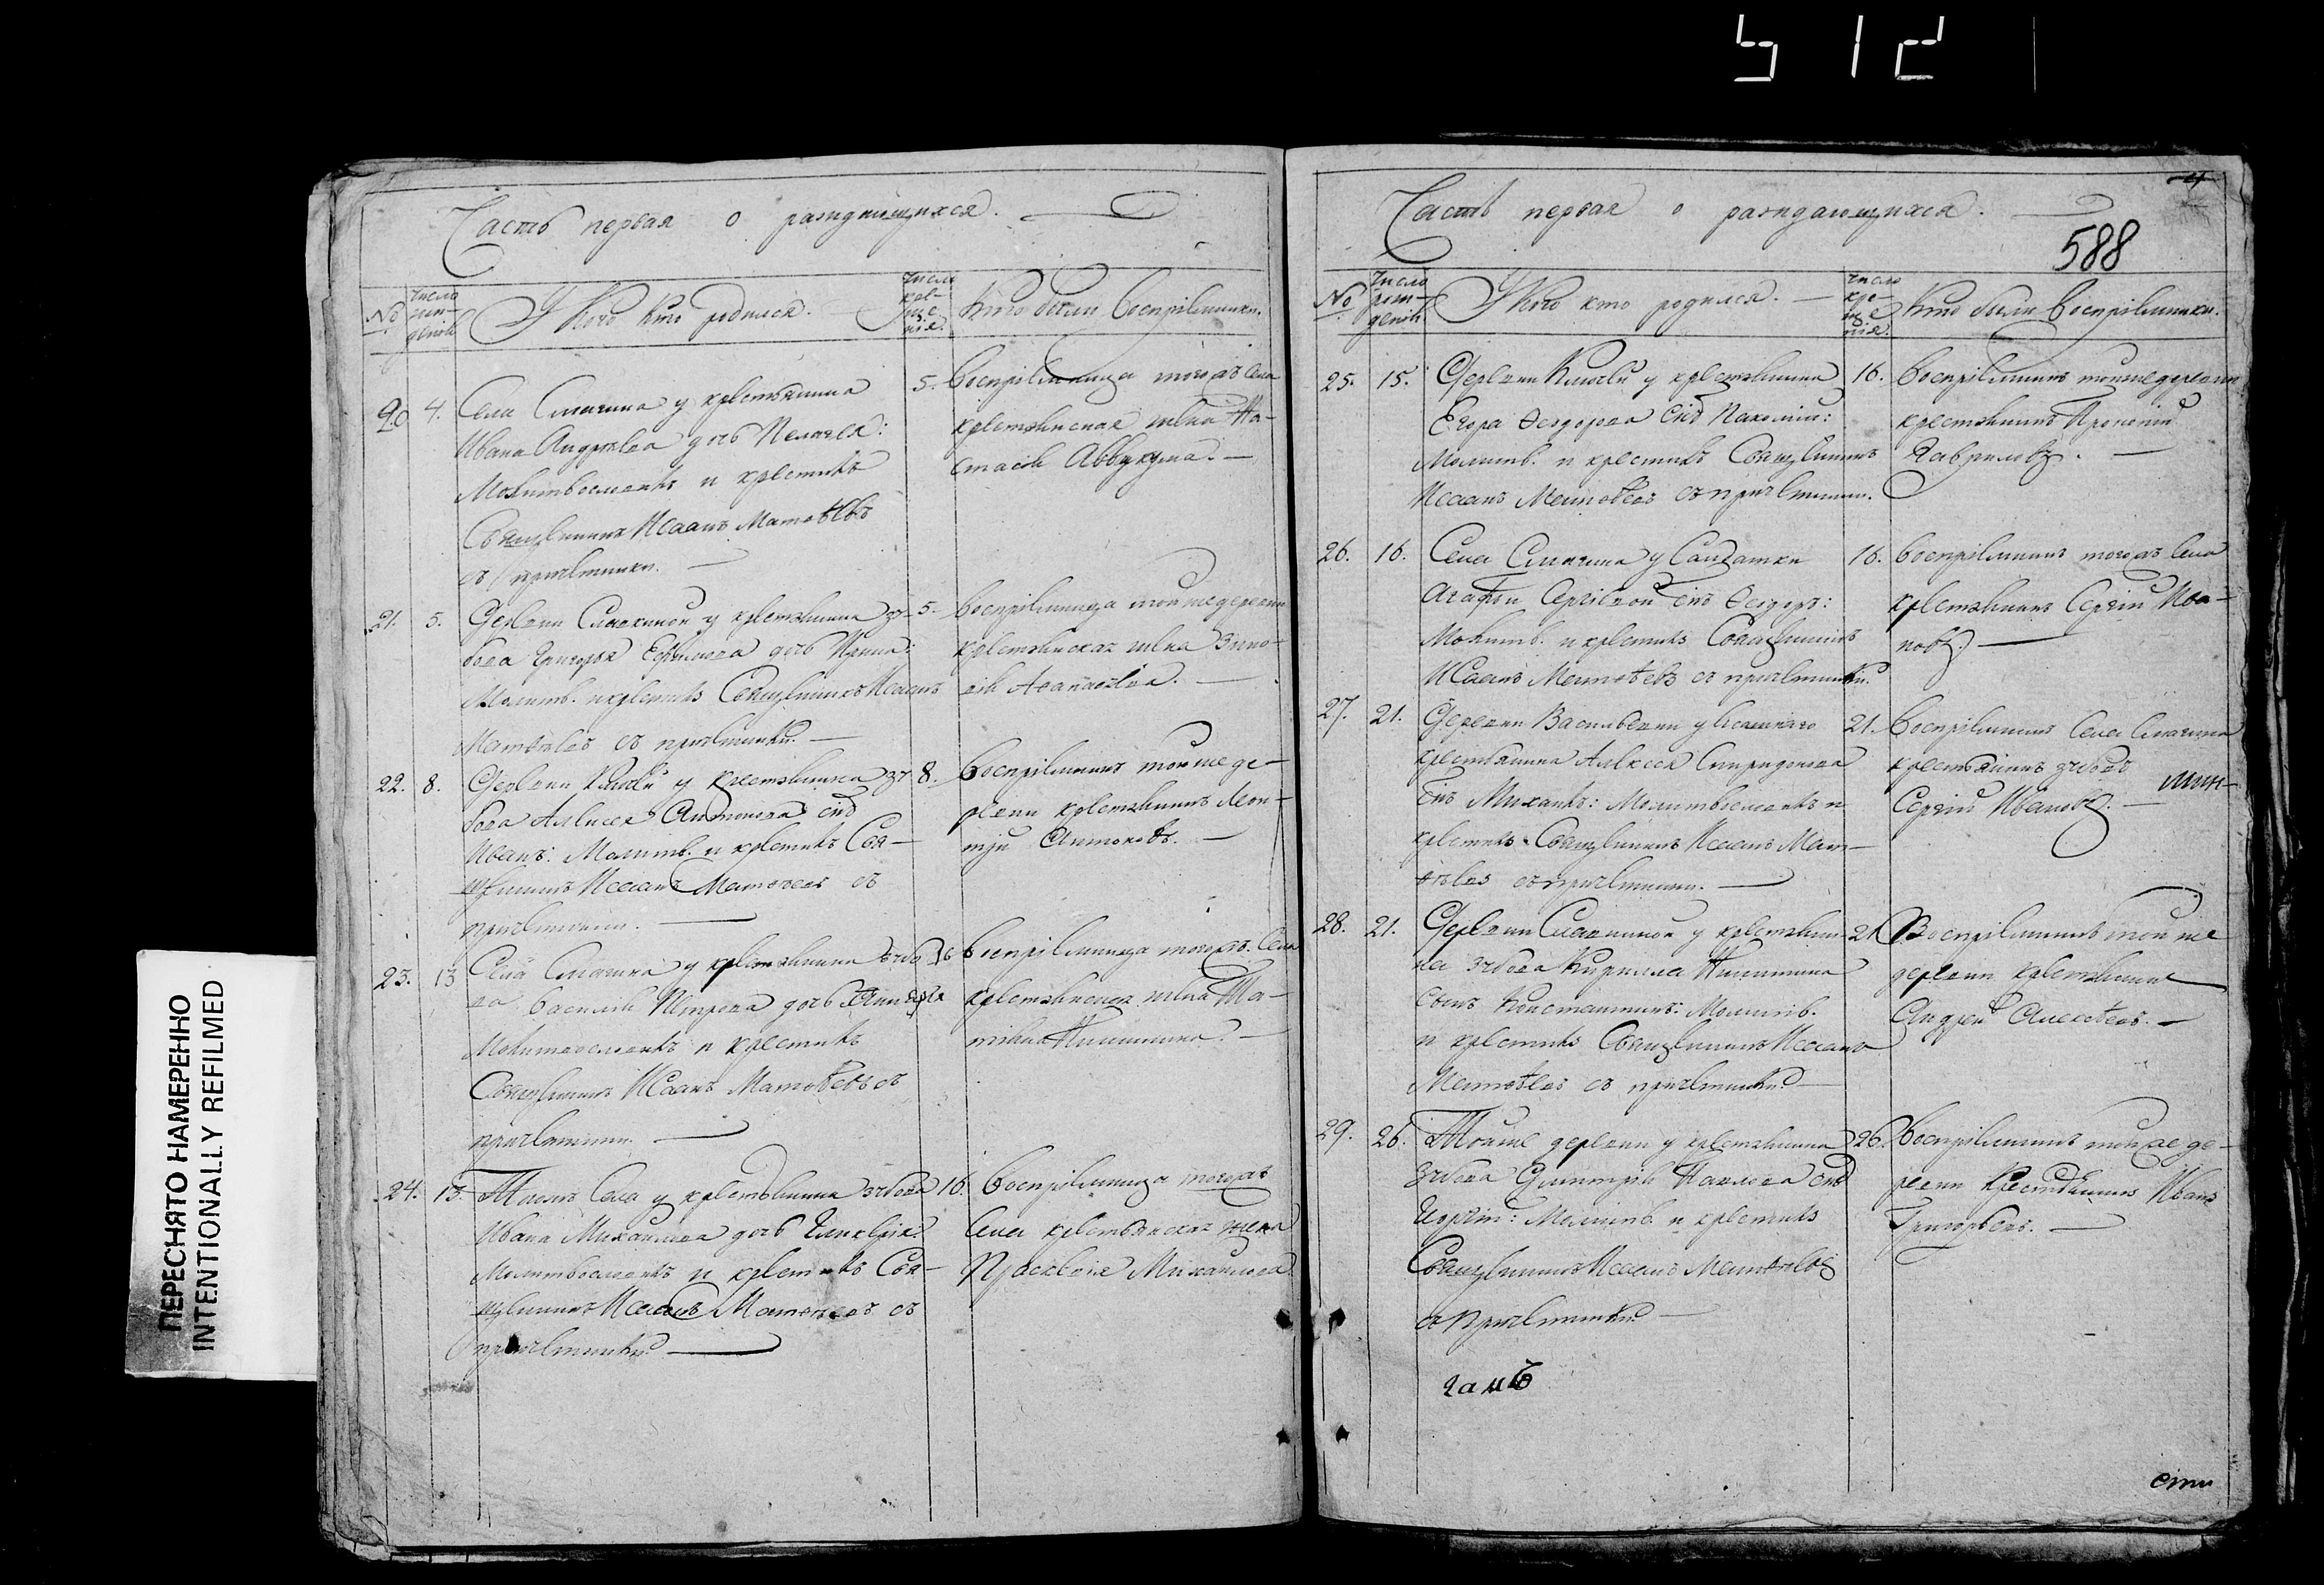 512
ПЕРЕСНЯТО НАМЕРЕННО
INTENTIONALLY REFILMED
Часть первая о раждающихся.
№
число рож-денія
У кого кто родился.
число кре-ще-нія.
Кто были воспріемники.
20. 4.
Села Смагина у крестьянина
Ивана Андреева дочь Пелагея:
Молитвословилъ и крестилъ
Священникъ Исаакъ Матвѣевъ
съ причетники.
5. воспріемница тогожъ села
крестьянская жена На-
стасія Аввакума.
21. 5.
Деревни у крестьянина Зу-
бова Григорья Ермолова дочь Ирина:
Молитв. и крестилъ Священникъ Исаакъ
Матвѣевъ съ причетники.
5. воспріемница той же деревни
крестьянская жена Зино-
вія Афанасьева.
22. 8.
Деревни Ключи у крестьянина Зу-
бова Алексея Антонова снъ
Иванъ: Молитв. и крестилъ Свя-
щенникъ Исаакъ Матвѣевъ съ
причетники.
8. воспріемникъ той же де-
ревни крестьянинъ Леон-
тій Антоновъ.
23. 13
Села Смагина у крестьянина Зубо
ва Василія Петрова дочь
Молитвословилъ и крестилъ
Священникъ Исаакъ Матвѣевъ съ
причетники.
16 воспріемница тогожъ села
крестьянская жена Та-
тіана Никитина.
24. 13.
Тогожъ села у крестьянина Зубова
Ивана Михаилова дочь Гликерія.
Молитвословилъ и крестилъ Свя-
щенникъ Исаакъ Матвѣевъ съ
причетники.
16. воспріемница тогожъ
села крестьянская жена
Прасковья Михаилова.
4
Часть первая о раждающихся.
588
№
число рож-денія
У кого кто родился.
число кре-ще-нія.
Кто были воспріемники.
25. 15.
Деревни Ключи у крестьянина
Егора Ѳеодорова снъ Пахомій:
Молитв. и крестилъ Священникъ
Исаакъ Матвѣевъ съ причетники.
16. воспріемникъ той же деревни
крестьянинъ Прокопій
Гавриловъ.
26. 16.
Села Смагина у Салдатки
Агафьи Сергіевой снъ Ѳеодоръ:
Молитв. и крестилъ Священникъ
Исаакъ Матвѣевъ съ причетники.
16. воспріемникъ тогожъ села
крестьянинъ Сергій Ива-
новъ.
27. 21.
Деревни Васильевки у
крестьянина Алексея Спиридонова
снъ Михаилъ: Молитвословилъ и
крестилъ Священникъ Исаакъ Мат-
вѣевъ съ причетники.
21. воспріемникъ села Смагина
крестьянинъ Зубовъ
Сергій Ивановъ.
28. 21.
Деревни у крестьяни-
на Зубова Кирилла Никитина
сынъ Константинъ: Молитв.
и крестилъ Священникъ Исаакъ
Матвѣевъ съ причетники.
21. Воспріемникъ той же
деревни крестьянинъ
Андрей Алексѣевъ.
29. 26.
Той же деревни у крестьянина
Зубова Димитрія Павлова снъ
Георгій: Молитв. и крестилъ
Священникъ Исаакъ Матвѣевъ
съ причетники.
26. воспріемникъ той же де-
ревни крестьянинъ Иванъ
Григорьевъ.